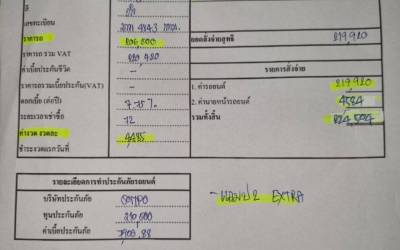 สี ดำ
เลขทะเบียน
ราคารถ 806,000
ราคารถ รวม VAT
ค่าเบี้ยประกันชีวิต -
ราคารถรวมเบี้ยประกัน(VAT) -
ดอกเบี้ย (ต่อปี) 7.75%
ระยะเวลาเช่าซื้อ 72
ค่างวด งวดละ
ชำระงวดแรกวันที่
ยอดสั่งจ่ายสุทธิ 819,920
รายการสั่งจ่าย
1. ค่ารถยนต์ 819,920
2. ค่านายหน้ารถยนต์ 4584
รวมทั้งสิ้น 824,504
รายละเอียดการทำประกันภัยรถยนต์
บริษัทประกันภัย
ทุนประกันภัย
ค่าเบี้ยประกันภัย 7900.88
EXTRA